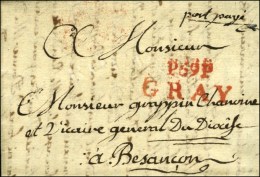 port payé
A Monsieur
P69P
GRAY
Monsieur grappin chanoine
et Vicaire general Du Diocèse
à Besançon